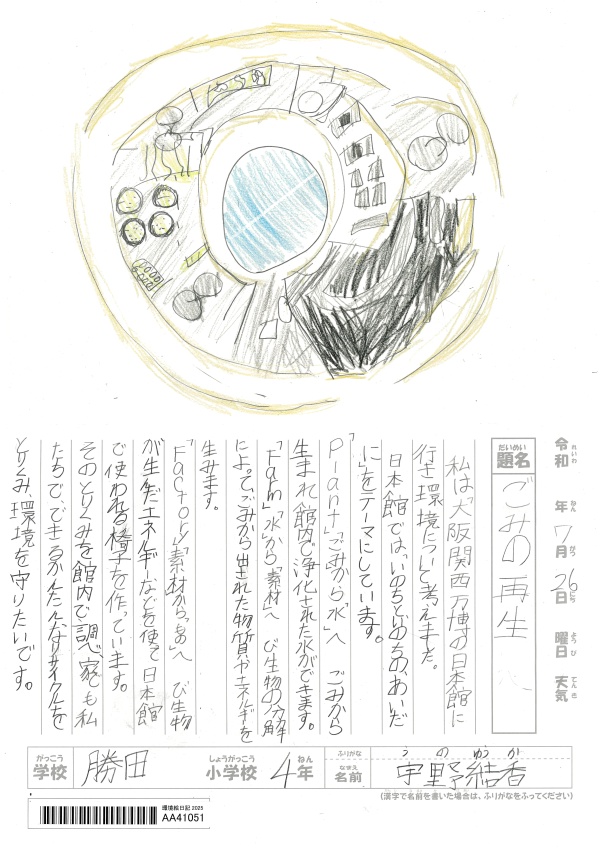 令和 年 7月 26日 曜日 天気
れいわ ねん がつ にち ようび てんき
だいめい
題名
ごみの再生
私は「大阪関西万博の日本館に
行き環境について考えました。
日本館では「いのちといのちの、あいだ
に」をテーマにしています。
「Plant」ごみから水」へ ごみから
生まれ館内で浄化された水ができます。
「Fam」水」から「素材」へ び生物の分解
によって、ごみから出された物質やエネルギーを
生みます。
「Factory」「素材」から「もの」へ び生物
が生んだエネルギーなどを使って日本館
で使われる椅子を作っています。
そのとりくみを館内で調べ家でも私
たちで、できるかんたんなリサイクルを
とりくみ、環境を守りたいです。
がっこう
学校
勝田
しょうがっこう
小学校
4年
ねん
ふりがな
うのゆか
なまえ
名前
宇野結香
(漢字で名前を書いた場合は、ふりがなをふってください)
環境絵日記 2025
AA41051